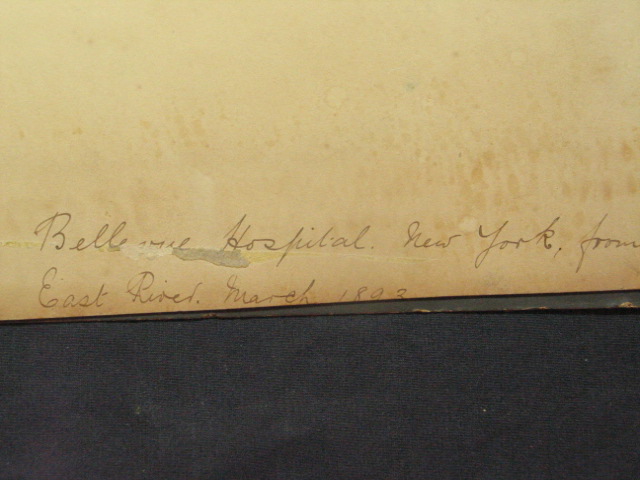 Bellevue Hospital. New York, from
East River. March 1893